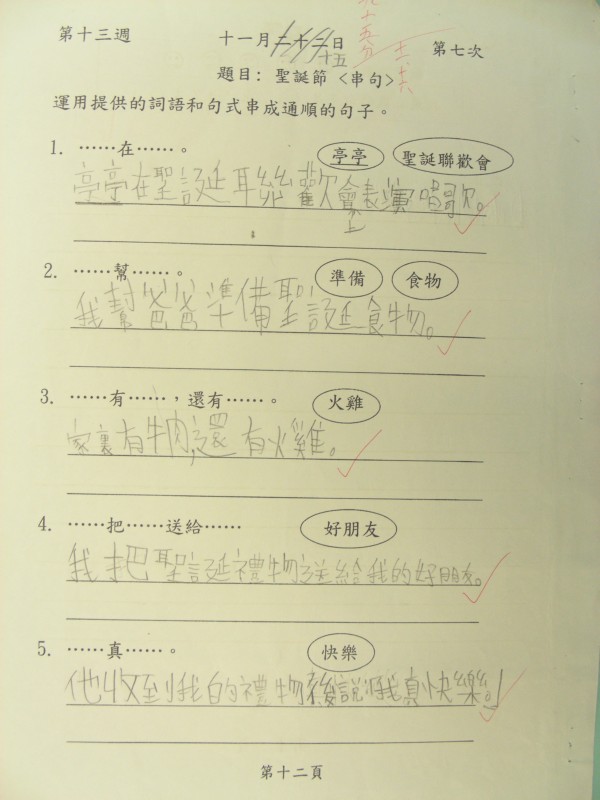 第十三週 十一月二十二日 十五 第七次
九十五分
題目：聖誕節〈串句〉
運用提供的詞語和句式串成通順的句子。
1. ……在……。 亭亭 聖誕聯歡會
亭亭在聖誕聯歡會上表演唱歌。
2. ……幫……。 準備 食物
我幫爸爸準備聖誕食物。
3. ……有……，還有……。 火雞
家裏有牛肉,還有火雞。
4. ……把……送給…… 好朋友
我把聖誕禮物送給我的好朋友。
5. ……真……。 快樂
他收到我的禮物後說:我真快樂!
第十二頁